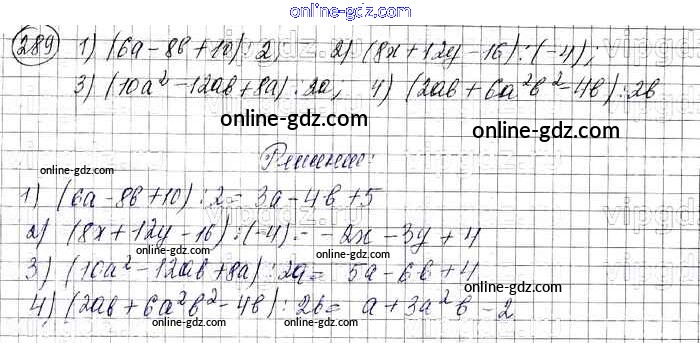 online-gdz.com
289 1) (6a-8b+10):2, 2) (8x+12y-16):(-4);
3) (10a²-12ab+8a):2a, 4) (2ab+6a²b²-4b):2b
online-gdz.com online-gdz.com
Решение:
online-gdz.com
1) (6a-8b+10):2=3a-4b+5
online-gdz.com
2) (8x+12y-16):(-4)=-2x-3y+4
online-gdz.com
3) (10a²-12ab+8a):2a= 5a-6b+4
4) (2ab+6a²b²-4b):2b= a+3a²b-2
online-gdz.com online-gdz.com